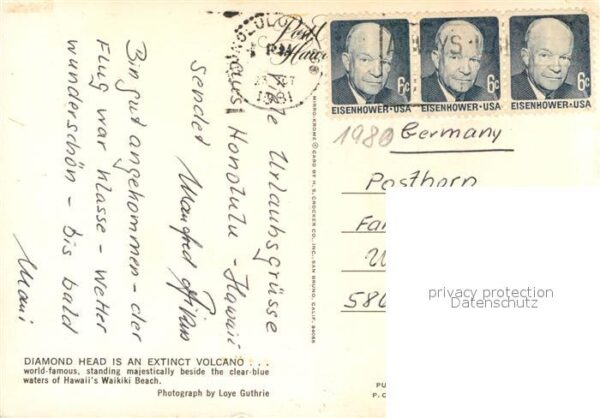 HONOLULU
PM
EISENHOWER·USA
6c
EISENHOWER·USA
6c
EISENHOWER·USA
6c
Viele Urlaubsgrüsse
aus Honolulu - Hawaii
sendet Manfred
Bin gut angekommen - der
Flug war klasse - Wetter
wunderschön - bis bald
Mani
1980
Germany
Posthorn
Fa
58
privacy protection
Datenschutz
MIRRO-KROME ® CARD BY H. S. CROCKER CO., INC., SAN BRUNO, CALIF. 94066
DIAMOND HEAD IS AN EXTINCT VOLCANO . . .
world-famous, standing majestically beside the clear-blue
waters of Hawaii's Waikiki Beach.
Photograph by Loye Guthrie
PU
P. O